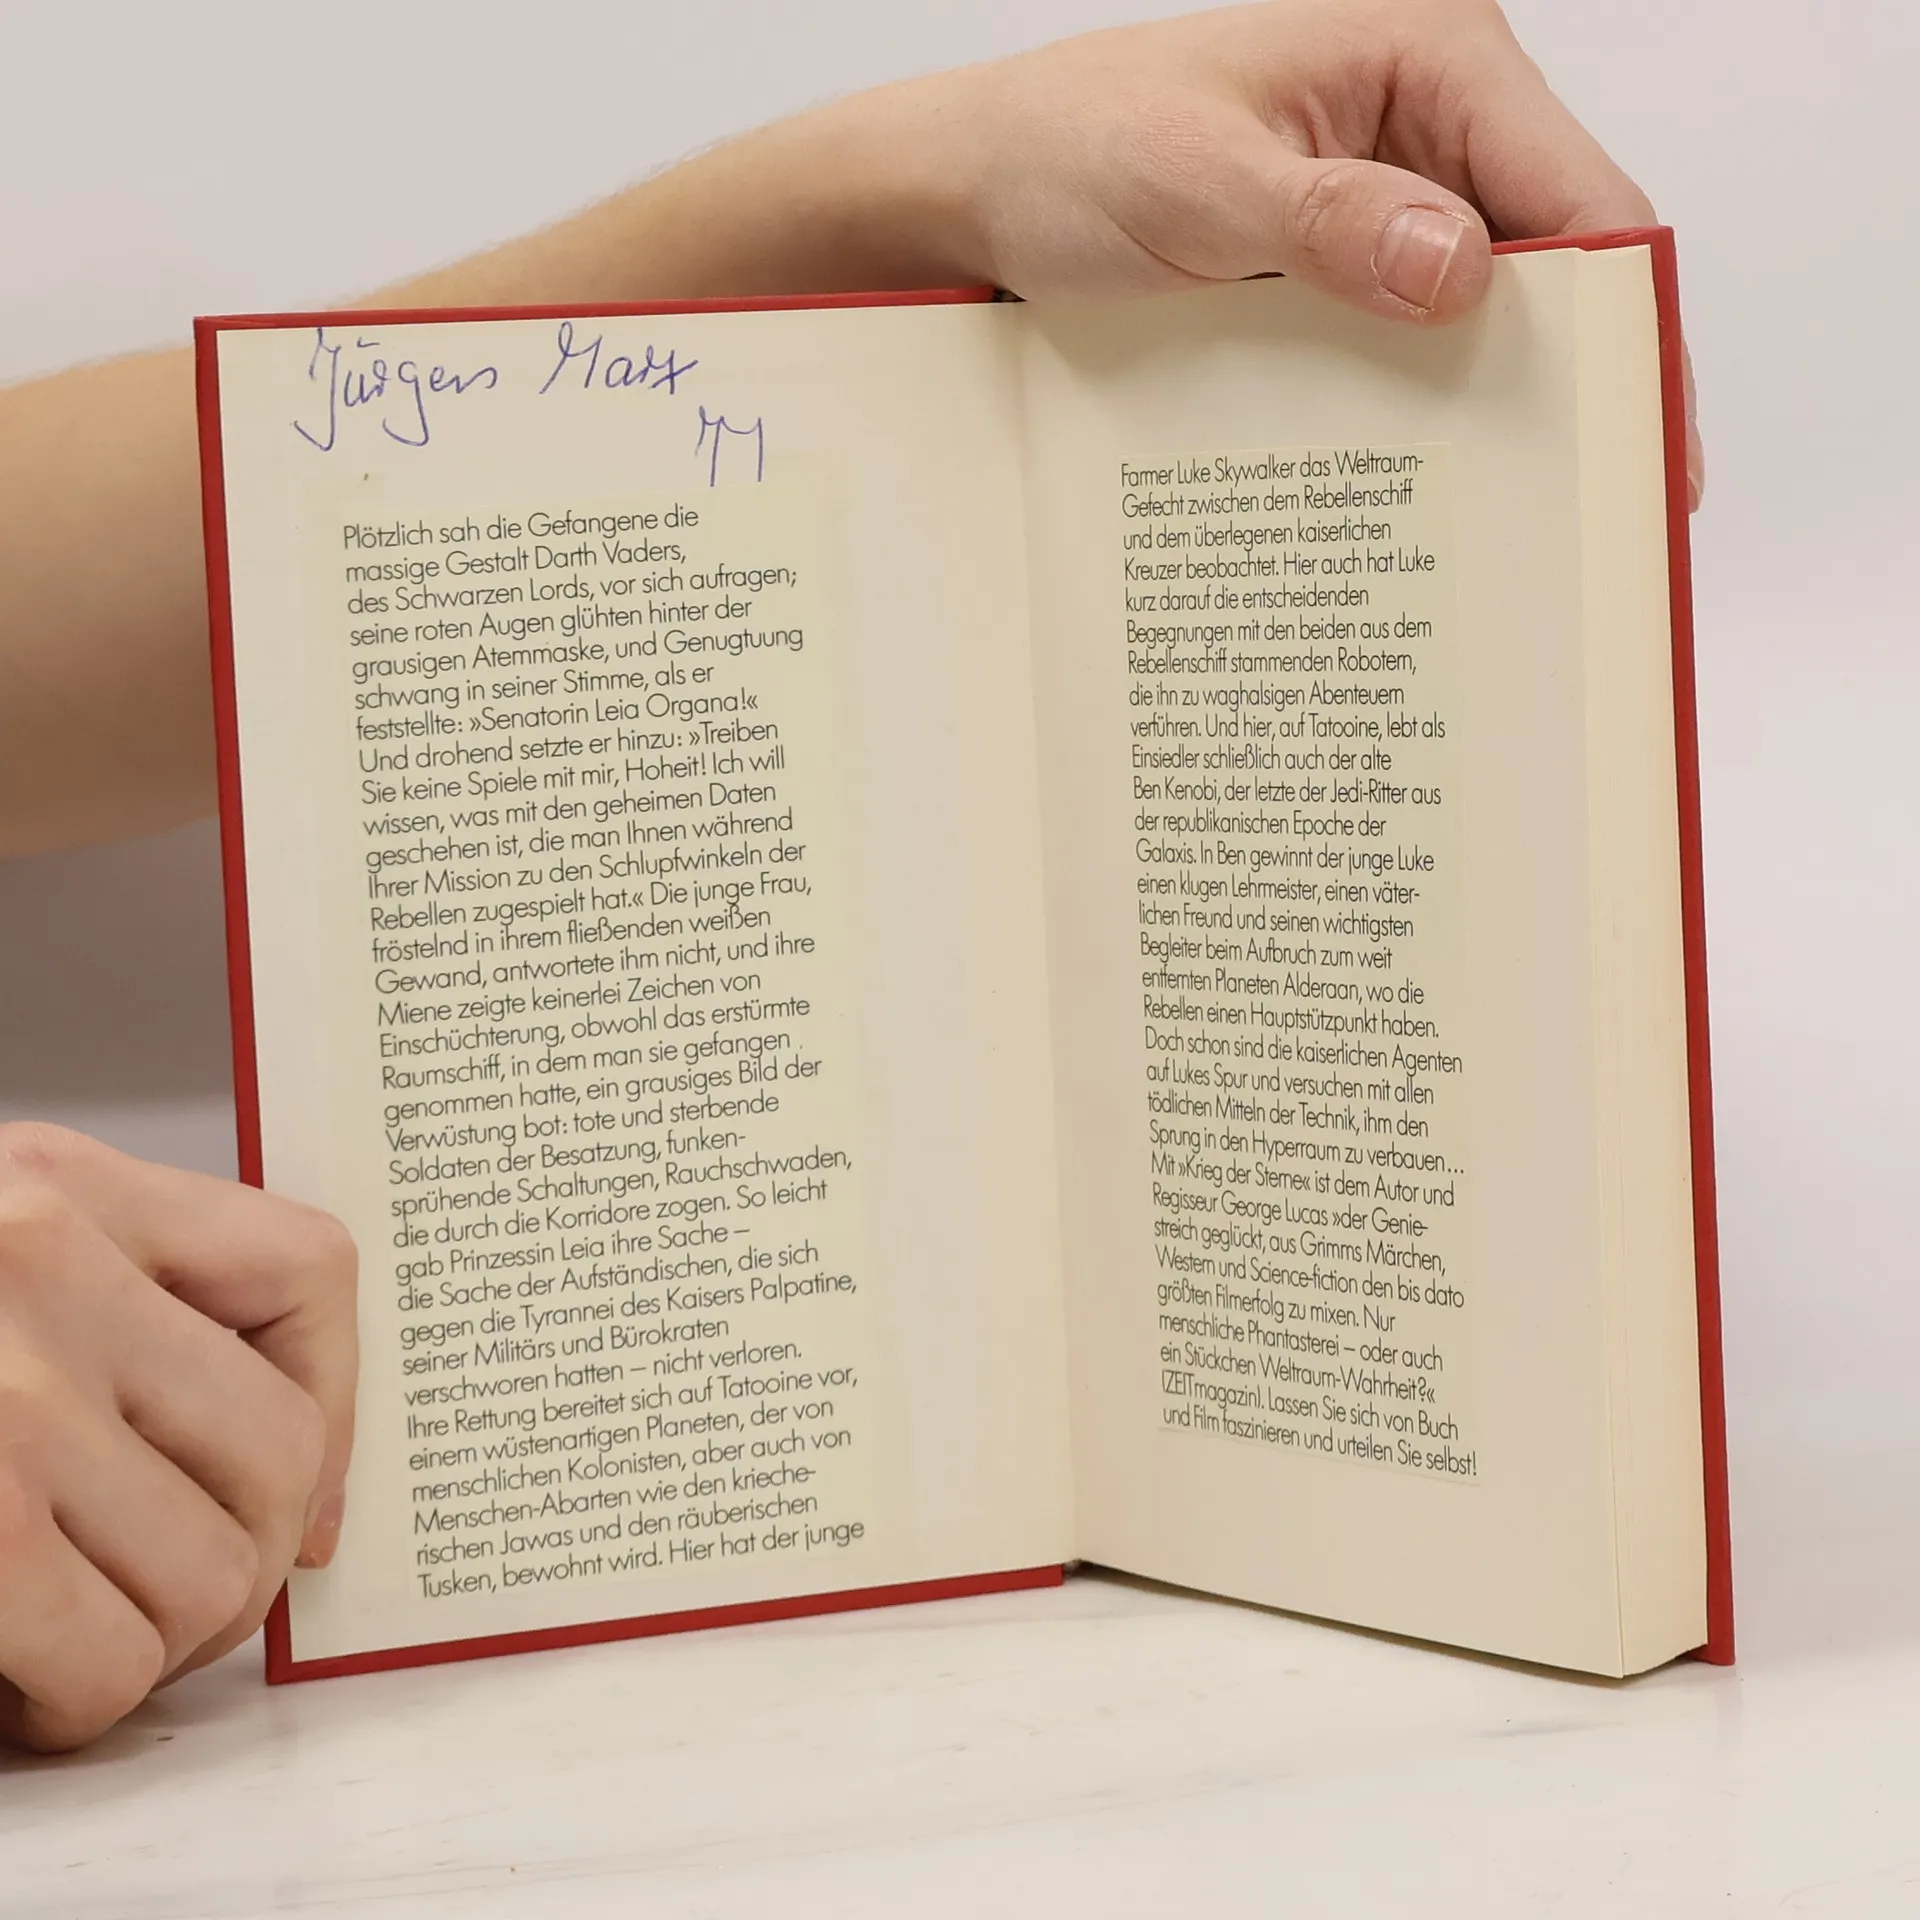 Jürgen Marx
71
Plötzlich sah die Gefangene die
massige Gestalt Darth Vaders,
des Schwarzen Lords, vor sich aufragen;
seine roten Augen glühten hinter der
grausigen Atemmaske, und Genugtuung
schwang in seiner Stimme, als er
feststellte: »Senatorin Leia Organa!«
Und drohend setzte er hinzu: »Treiben
Sie keine Spiele mit mir, Hoheit! Ich will
wissen, was mit den geheimen Daten
geschehen ist, die man Ihnen während
Ihrer Mission zu den Schlupfwinkeln der
Rebellen zugespielt hat.« Die junge Frau,
fröstelnd in ihrem fließenden weißen
Gewand, antwortete ihm nicht, und ihre
Miene zeigte keinerlei Zeichen von
Einschüchterung, obwohl das erstürmte
Raumschiff, in dem man sie gefangen
genommen hatte, ein grausiges Bild der
Verwüstung bot: tote und sterbende
Soldaten der Besatzung, funken-
sprühende Schaltungen, Rauchschwaden,
die durch die Korridore zogen. So leicht
gab Prinzessin Leia ihre Sache –
die Sache der Aufständischen, die sich
gegen die Tyrannei des Kaisers Palpatine,
seiner Militärs und Bürokraten
verschworen hatten – nicht verloren.
Ihre Rettung bereitet sich auf Tatooine vor,
einem wüstenartigen Planeten, der von
menschlichen Kolonisten, aber auch von
Menschen-Abarten wie den krieche-
rischen Jawas und den räuberischen
Tusken, bewohnt wird. Hier hat der junge
Farmer Luke Skywalker das Weltraum-
Gefecht zwischen dem Rebellenschiff
und dem überlegenen kaiserlichen
Kreuzer beobachtet. Hier auch hat Luke
kurz darauf die entscheidenden
Begegnungen mit den beiden aus dem
Rebellenschiff stammenden Robotern,
die ihn zu waghalsigen Abenteuern
verführen. Und hier, auf Tatooine, lebt als
Einsiedler schließlich auch der alte
Ben Kenobi, der letzte der Jedi-Ritter aus
der republikanischen Epoche der
Galaxis. In Ben gewinnt der junge Luke
einen klugen Lehrmeister, einen väter-
lichen Freund und seinen wichtigsten
Begleiter beim Aufbruch zum weit
entfernten Planeten Alderaan, wo die
Rebellen einen Hauptstützpunkt haben.
Doch schon sind die kaiserlichen Agenten
auf Lukes Spur und versuchen mit allen
tödlichen Mitteln der Technik, ihm den
Sprung in den Hyperraum zu verbauen...
Mit »Krieg der Sterne« ist dem Autor und
Regisseur George Lucas »der Genie-
streich geglückt, aus Grimms Märchen,
Western und Science-fiction den bis dato
größten Filmerfolg zu mixen. Nur
menschliche Phantasterei – oder auch
ein Stückchen Weltraum-Wahrheit?«
(ZEITmagazin). Lassen Sie sich von Buch
und Film faszinieren und urteilen Sie selbst!